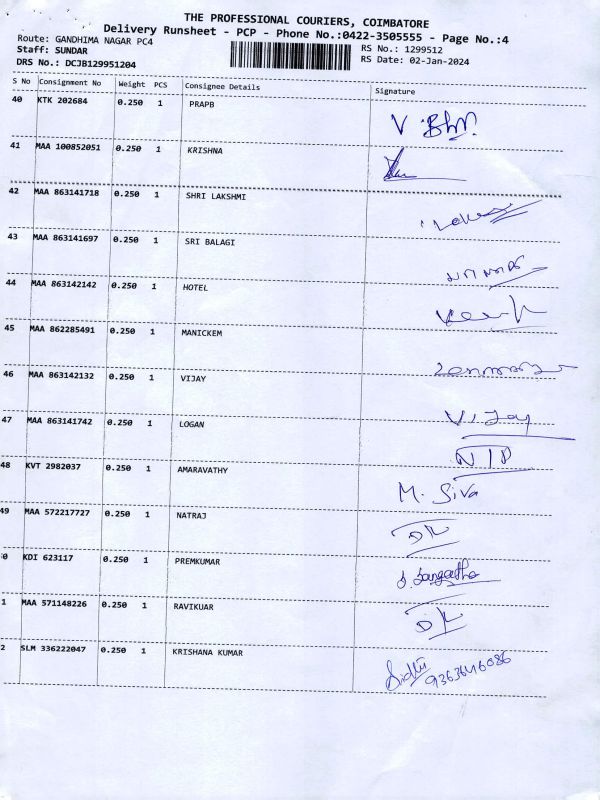 THE PROFESSIONAL COURIERS, COIMBATORE
Delivery Runsheet - PCP - Phone No.:0422-3505555 - Page No.:4
Route: GANDHIMA NAGAR PC4 RS No.: 1299512
Staff: SUNDAR RS Date: 02-Jan-2024
DRS No.: DCJB129951204
S No Consignment No Weight PCS Consignee Details Signature
40 KTK 202684 0.250 1 PRAPB
41 MAA 100852051 0.250 1 KRISHNA
42 MAA 863141718 0.250 1 SHRI LAKSHMI
43 MAA 863141697 0.250 1 SRI BALAGI
44 MAA 863142142 0.250 1 HOTEL
45 MAA 862285491 0.250 1 MANICKEM
46 MAA 863142132 0.250 1 VIJAY Vijay
47 MAA 863141742 0.250 1 LOGAN N/D
48 KVT 2982037 0.250 1 AMARAVATHY M. Siva
49 MAA 572217727 0.250 1 NATRAJ D/L
0 KDI 623117 0.250 1 PREMKUMAR
1 MAA 571148226 0.250 1 RAVIKUAR D/L
2 SLM 336222047 0.250 1 KRISHANA KUMAR Sidhu
9363646086